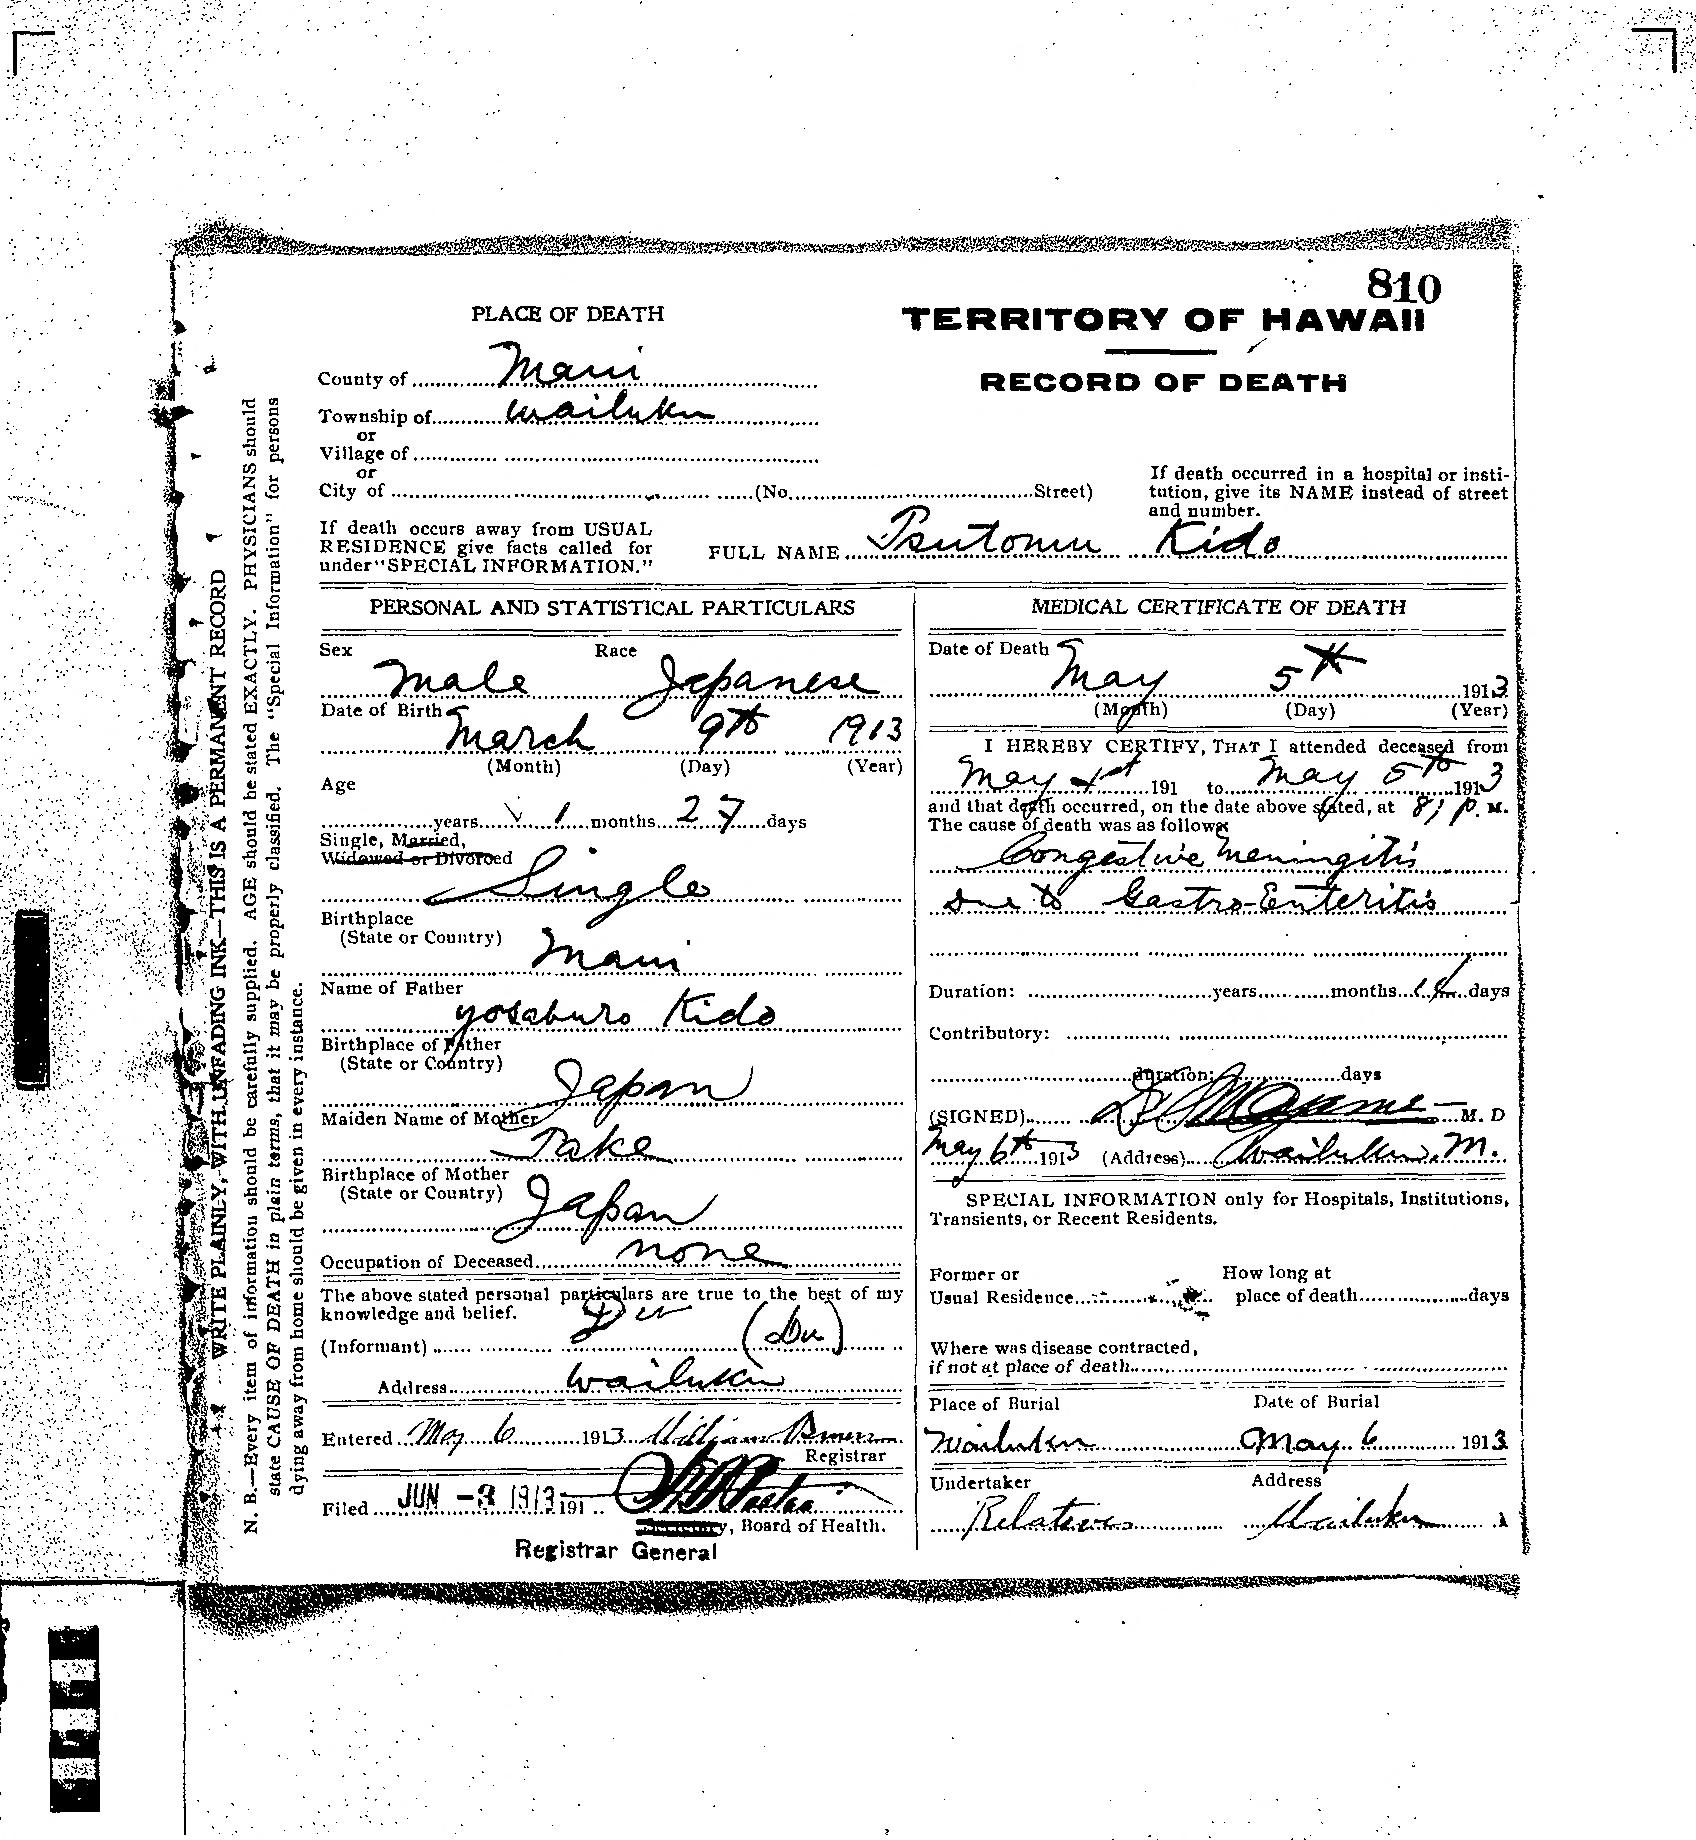 810
PLACE OF DEATH
TERRITORY OF HAWAII
RECORD OF DEATH
County of Maui
Township of Wailuku
or
Village of
or
City of (No. Street)
If death occurred in a hospital or insti-
tution, give its NAME instead of street
and number.
If death occurs away from USUAL
RESIDENCE give facts called for
under "SPECIAL INFORMATION."
FULL NAME Tsutomu Kido
WRITE PLAINLY, WITH UNFADING INK—THIS IS A PERMANENT RECORD
N. B.—Every item of information should be carefully supplied. AGE should be stated EXACTLY. PHYSICIANS should
state CAUSE OF DEATH in plain terms, that it may be properly classified. The "Special Information" for persons
dying away from home should be given in every instance.
PERSONAL AND STATISTICAL PARTICULARS
Sex Race
Male Japanese
Date of Birth
March 9th 1913
(Month) (Day) (Year)
Age
years 1 months 27 days
Single, Married,
Widowed or Divorced
Single
Birthplace
(State or Country)
Maui
Name of Father
Yosaburo Kido
Birthplace of Father
(State or Country)
Japan
Maiden Name of Mother
Take
Birthplace of Mother
(State or Country)
Japan
Occupation of Deceased none
The above stated personal particulars are true to the best of my
knowledge and belief.
(Informant)
Address Wailuku
Entered May 6 1913 William
Registrar
Filed JUN -3 1913 191
Secretary, Board of Health.
Registrar General
MEDICAL CERTIFICATE OF DEATH
Date of Death
May 5th 1913
(Month) (Day) (Year)
I HEREBY CERTIFY, THAT I attended deceased from
May 1st 191 to May 5th 1913
and that death occurred, on the date above stated, at 8; P. M.
The cause of death was as follows:
Congestive Meningitis
Due to Gastro-Enteritis
Duration: years months days
Contributory:
duration: days
(SIGNED) M. D
May 6th 1913 (Address) Wailuku, M.
SPECIAL INFORMATION only for Hospitals, Institutions,
Transients, or Recent Residents.
Former or How long at
Usual Residence place of death days
Where was disease contracted,
if not at place of death
Place of Burial Date of Burial
Wailuku May 6 1913
Undertaker Address
Relatives Wailuku